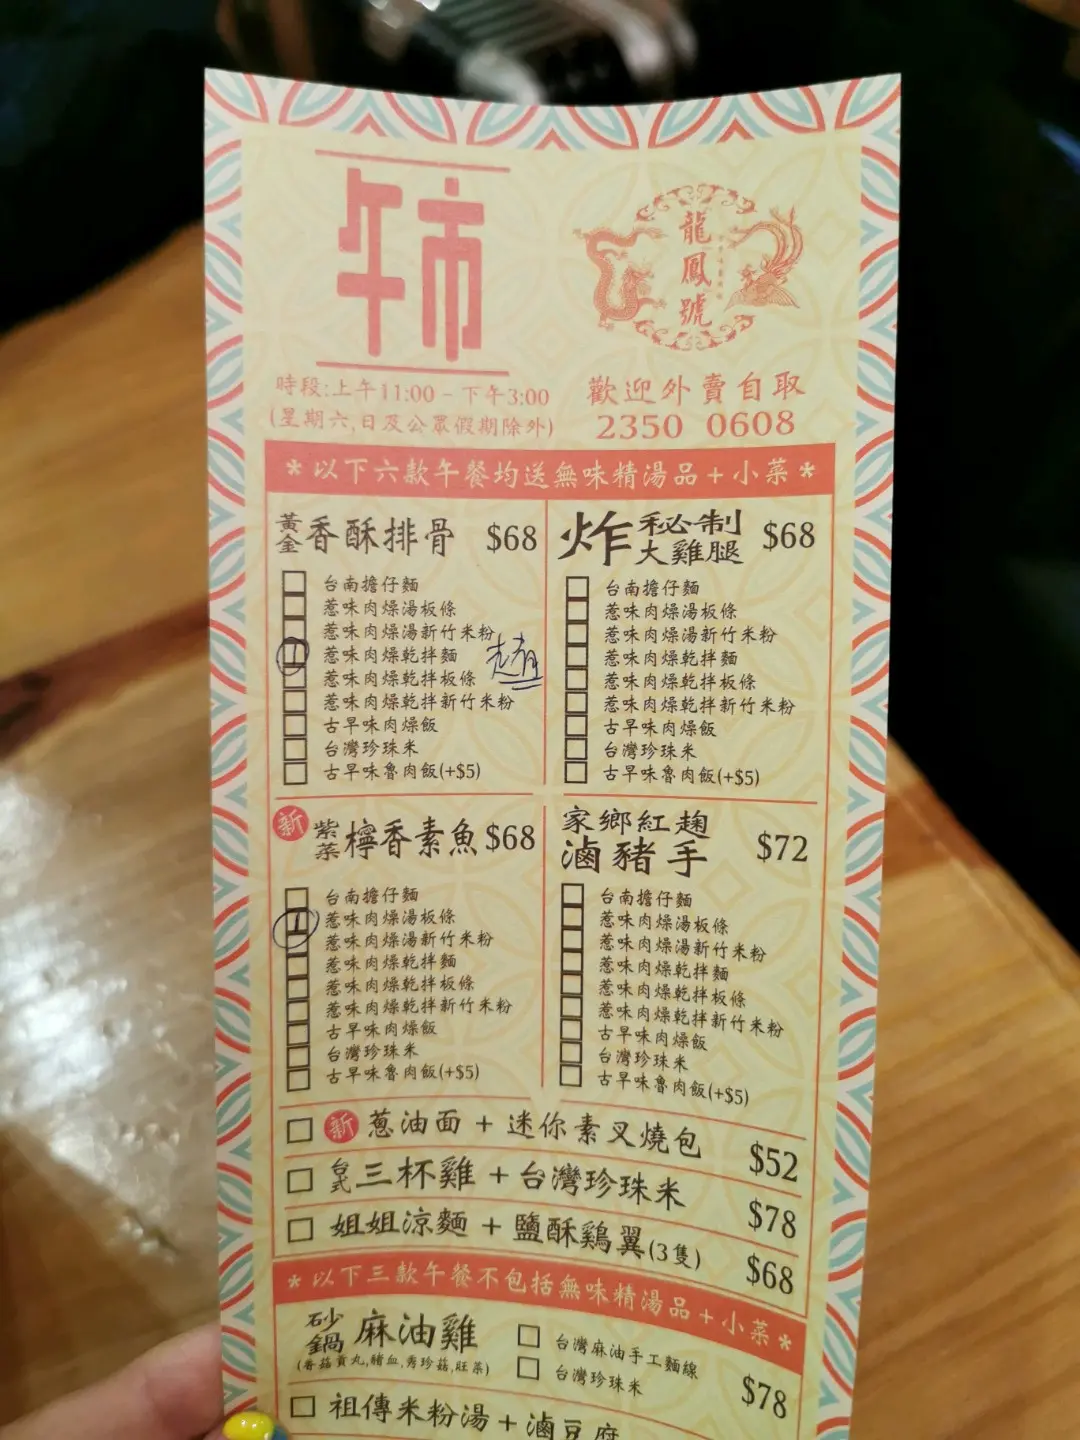 午市
龍鳳號
時段:上午11:00 - 下午3:00
(星期六,日及公眾假期除外)
歡迎外賣自取
2350 0608
*以下六款午餐均送無味精湯品+小菜*
黃金香酥排骨 $68
台南擔仔麵
惹味肉燥湯板條
惹味肉燥湯新竹米粉
惹味肉燥乾拌麵 走青
惹味肉燥乾拌板條
惹味肉燥乾拌新竹米粉
古早味肉燥飯
台灣珍珠米
古早味魯肉飯(+$5)
炸秘制大雞腿 $68
台南擔仔麵
惹味肉燥湯板條
惹味肉燥湯新竹米粉
惹味肉燥乾拌麵
惹味肉燥乾拌板條
惹味肉燥乾拌新竹米粉
古早味肉燥飯
台灣珍珠米
古早味魯肉飯(+$5)
新 紫菜檸香素魚 $68
台南擔仔麵
惹味肉燥湯板條
惹味肉燥湯新竹米粉
惹味肉燥乾拌麵
惹味肉燥乾拌板條
惹味肉燥乾拌新竹米粉
古早味肉燥飯
台灣珍珠米
古早味魯肉飯(+$5)
家鄉紅麴
滷豬手 $72
台南擔仔麵
惹味肉燥湯板條
惹味肉燥湯新竹米粉
惹味肉燥乾拌麵
惹味肉燥乾拌板條
惹味肉燥乾拌新竹米粉
古早味肉燥飯
台灣珍珠米
古早味魯肉飯(+$5)
新 蔥油面+迷你素叉燒包 $52
台式三杯雞+台灣珍珠米 $78
姐姐涼麵+鹽酥鷄翼(3隻) $68
*以下三款午餐不包括無味精湯品+小菜*
砂鍋麻油雞
(香菇貢丸,豬血,秀珍菇,旺菜)
台灣麻油手工麵線
台灣珍珠米
$78
祖傳米粉湯+滷豆腐